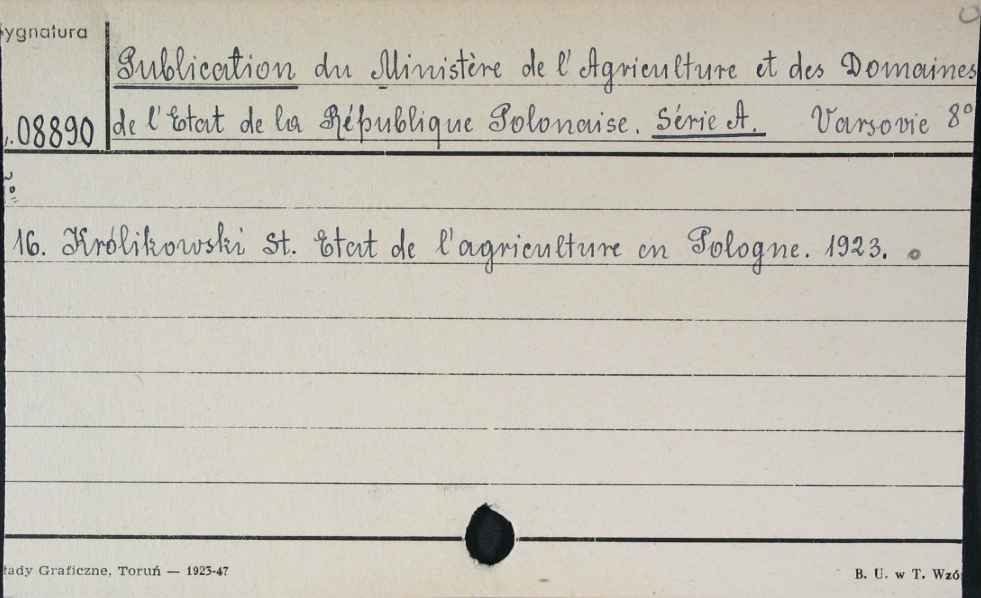 ygnatura
Publication du Ministère de l'Agriculture et des Domaines
08890 de l'Etat de la République Polonaise. Série A. Varsovie 8°
16. Królikowski St. Etat de l'agriculture en Pologne. 1923.
łady Graficzne, Toruń — 1923-47
B. U. w T. Wzó